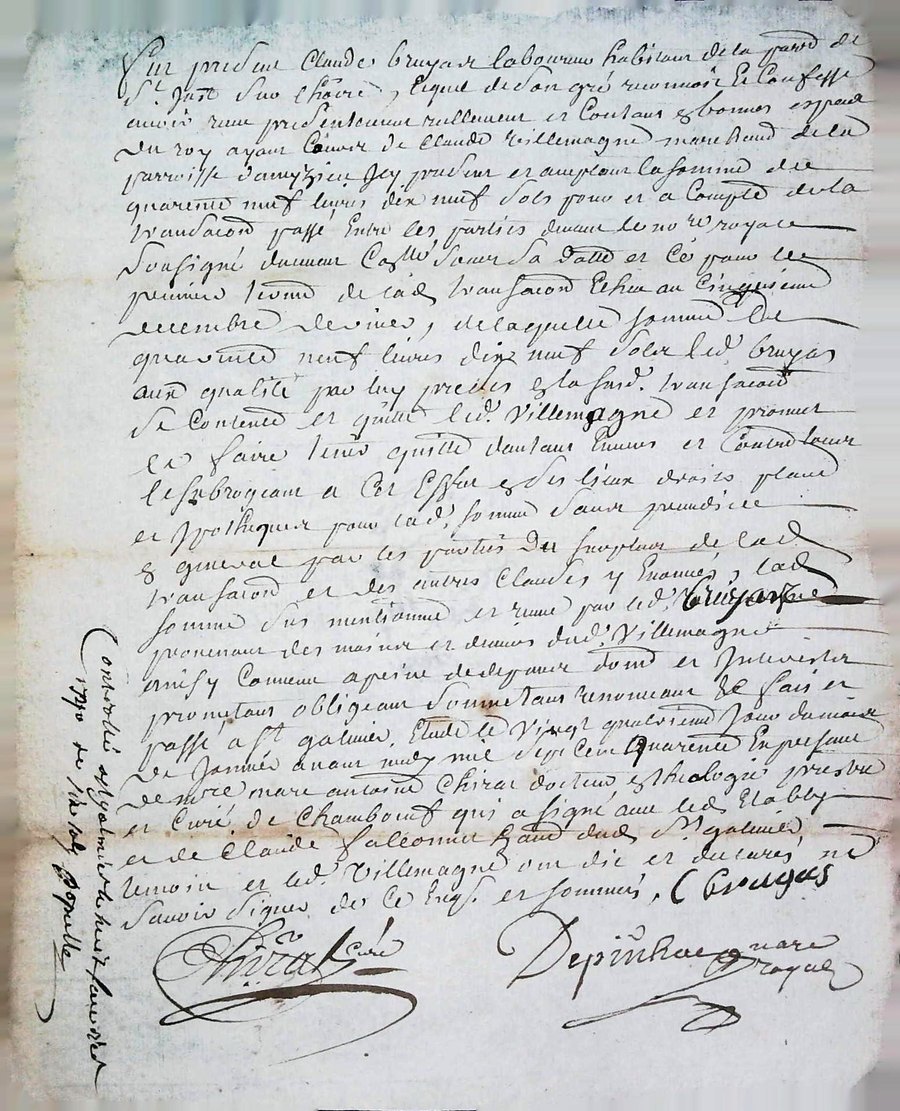 fut present Claude bruyas laboureur habitant de la parro de
St. Just sur Choire, lequel de son gré reconnoit et Confesse
avoir reçeu presentement reellement et Contant & bonnes especes
du roy ayant Cours de Claude Villemagne marchand de la
parroisse d'amizieu Icy present et acceptant la somme de
quarente neuf livres dix neuf sols pour et a Compte de la
transaction passé Entre les parties devant le nore royal
Soussigné duement Collée sous Sa datte et Ce pour le
premier terme de lad. transaction Echeu au Cinquieme
decembre dernier, de laquelle somme de
quarente neuf livres dix neuf sols led. bruyas
aux qualité par luy prises & lasusd. transaction
se Contente et quitte led. Villemagne et promet
le faire tenir quitte Envers et Contre tous
le subrogeant a Cet Effet & ses lieux droits place
et Ipotheques pour lad. somme sans prejudice
& general par les parties Du surplus de lad.
transaction et des autres Clauses y Enoncés, lad.
somme sus mentionné et reçue par led. bruyas
provenant des mains et deniers dud. Villemagne
ainsy Convenu a peine de depens dom. et Interests
prometant obligeant Soumettant renonceant &c fait et
passé a St. galmier, Etude le Vingt quatrieme Jour du mois
de Janvier avant midy mil Sept Cent quarente En presence
de mre marc antoine Chirat docteur & theologie prestre
et Curé de Chambœuf qui a signé avec led.
et de Claude falconnet dud. St. galmier
temoin et led. Villemagne ont dit et declarés ne
savoir signer de Ce Enqs. et sommés, C bruyas
Chirat Curé
Depinhac nore royal
Controllé a St galmier le huit fevrier
1740 Reçu